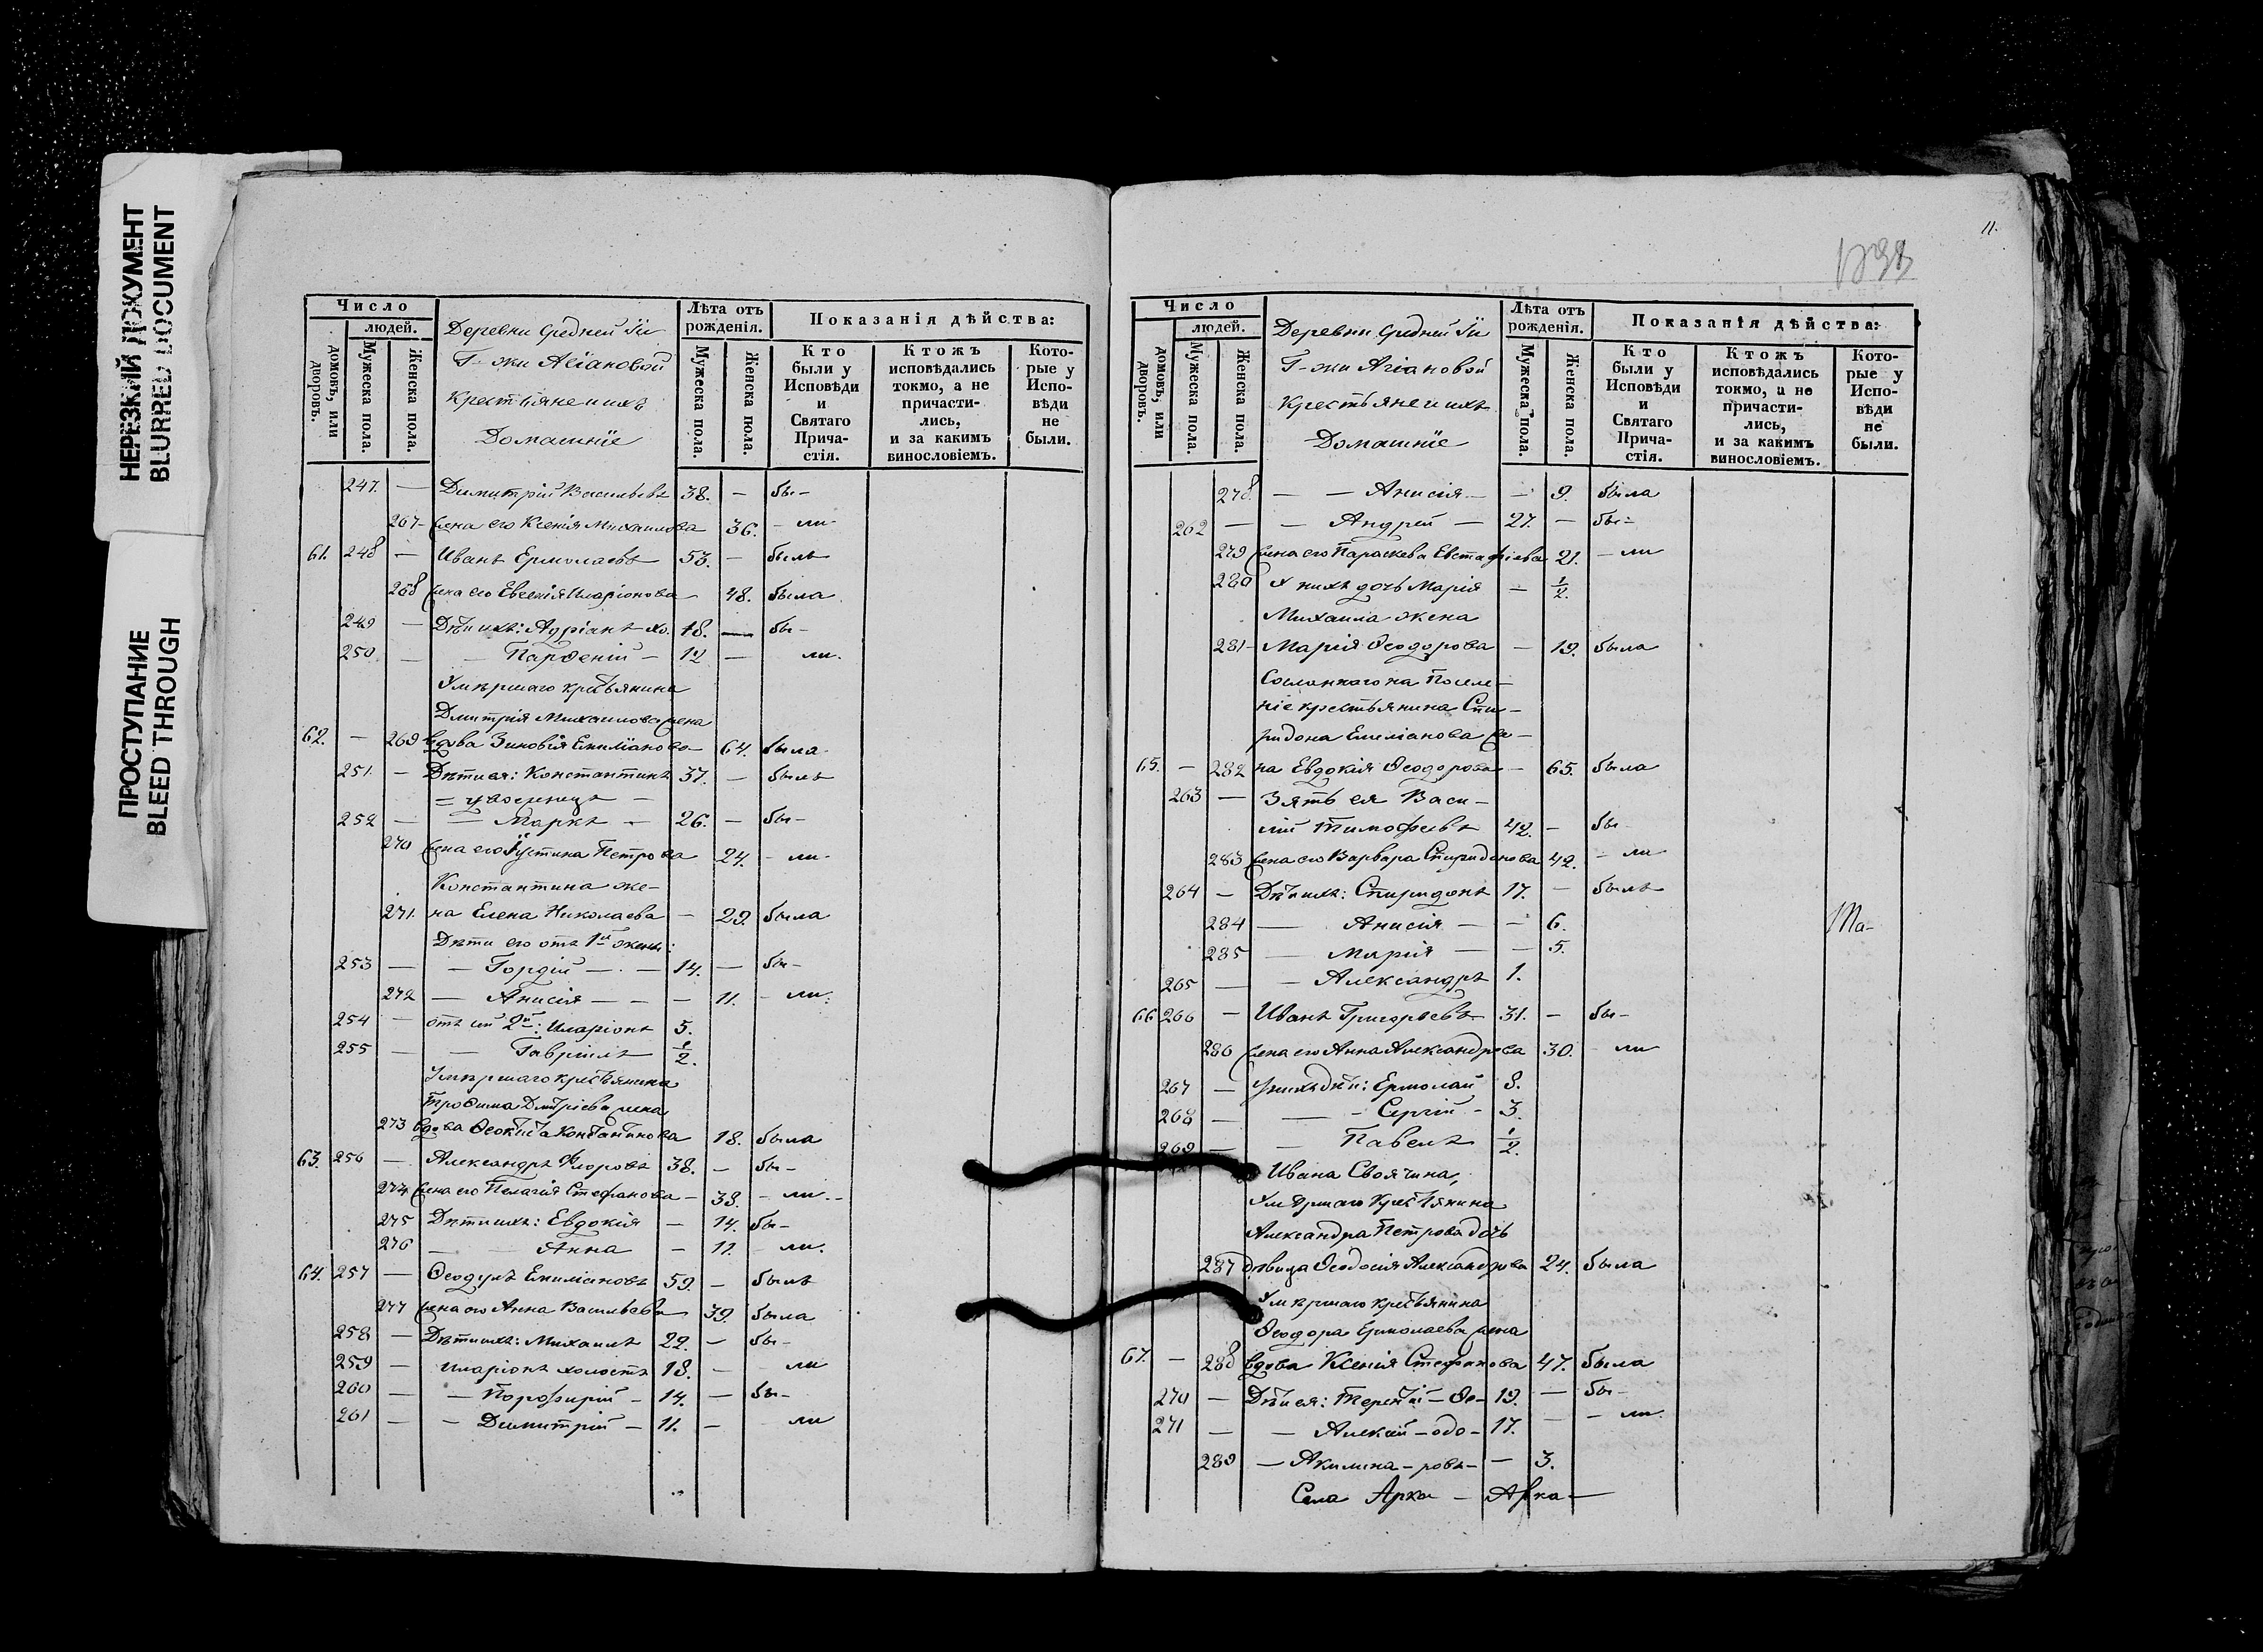 НЕРЕЗКИЙ ДОКУМЕНТ
BLURRED DOCUMENT
ПРОСТУПАНИЕ
BLEED THROUGH
Число
людей.
домовъ, или дворовъ.
Мужеска пола.
Женска пола.
Деревни Средней Іи
Г-жи Агіановой
Крестьяне и ихъ
Домашніе
Лѣта отъ рожденія.
Мужеска пола.
Женска пола.
Показанія дѣйства:
Кто были у Исповѣди и Святаго Прича-стія.
Ктожъ исповѣдались токмо, а не причасти-лись, и за какимъ винословіемъ.
Кото-рые у Испо-вѣди не были.
247. — Димитрій Васильевъ 38. — бы-
267 — жена его Ксенія Михаилова 36. — ли
61. 248 — Иванъ Ермолаевъ 53. — былъ
268 жена его Евгенія Иларіонова 48. была
249 — Дѣти ихъ: Адріанъ хо. 18. — бы-
250 — — Парѳеній — 12 — ли.
Умѣршаго крестьянина
Дмитрія Михаилова жена
62. — 269 вдова Зиновія Емиліанова — 64. была
251. — Дѣти ея: Константинъ 37. — былъ
= у
252 — — Маркъ — 26. — бы-
270 жена его Іустина Петрова 24. — ли
Константина же-
271. на Елена Николаева — 29. была
Дѣти его отъ 1й жены:
253 — — Гордій — — 14. — бы-
272 — Анисія — — — 11. — ли.
254 — отъ сй 2й: Иларіонъ 5.
255 — — Гавріилъ ½.
Умѣршаго крестьянина
Трофима Дмитріева жена
273 вдова Ѳеоктиста Константинова 18. была
63. 256 — Александръ Флоровъ 38. — бы-
274 жена его Пелагія Стефанова — 38. — ли —
275 Дѣти ихъ: Евдокія — 14. бы-
276 — Анна — 11. — ли.
64. 257 — Ѳеодулъ Емиліановъ 59. — былъ
277 жена его Анна Васильева 39. была
258 — Дѣти ихъ: Михаилъ 22. — бы-
259 — Иларіонъ холостъ 18. — ли
260 — — Порфирій — 14. — бы-
261 — — Димитрій — 11. — ли
11.
Число
людей.
домовъ, или дворовъ.
Мужеска пола.
Женска пола.
Деревни Средней Іи
Г-жи Агіановой
Крестьяне и ихъ
Домашніе
Лѣта отъ рожденія.
Мужеска пола.
Женска пола.
Показанія дѣйства:
Кто были у Исповѣди и Святаго Прича-стія.
Ктожъ исповѣдались токмо, а не причасти-лись, и за какимъ винословіемъ.
Кото-рые у Испо-вѣди не были.
278. — — Анисія — — 9. была
262 — — Андрей — 27. — бы-
279 жена его Параскева Евстафіева 21. — ли
280 У нихъ дочь Марія — ½.
Михаила жена
281 — Марія Ѳеодорова — 19. была
Сосланнаго на Поселе-
ніе крестьянина Спи-
ридона Емеліанова же-
65. — 282 на Евдокія Ѳеодорова — 65. была
263 — Зять ея Васи-
лій Тимофеевъ 42. — бы-
283 жена его Варвара Спиридонова 42. — ли
264 — Дѣти ихъ: Спиридонъ 17. — былъ
284 — Анисія — — 6.
285 — Марія — — 5.
Ма-
265 — — Александръ 1.
66 266 — Иванъ Григорьевъ 31. — бы-
286 жена его Анна Александрова 30. ли
267 — У нихъ дѣти: Ермолай 8.
268 — — Сергій — 3.
269 — — Павелъ ½.
Ивана Своячина,
Умѣршаго Крестьянина
Александра Петрова дочь
287 дѣвица Ѳеодосія Александрова 24. была
Умѣршаго крестьянина
Ѳеодора Ермолаева жена
67. — 288 вдова Ксенія Стефанова 47. была
270 — Дѣти ея: Терентій — Ѳе- 19. — бы-
271 — — Алексій — одо- 17. — ли.
289 — Акилина — ровъ — — 3.
Села Арха — Арха —